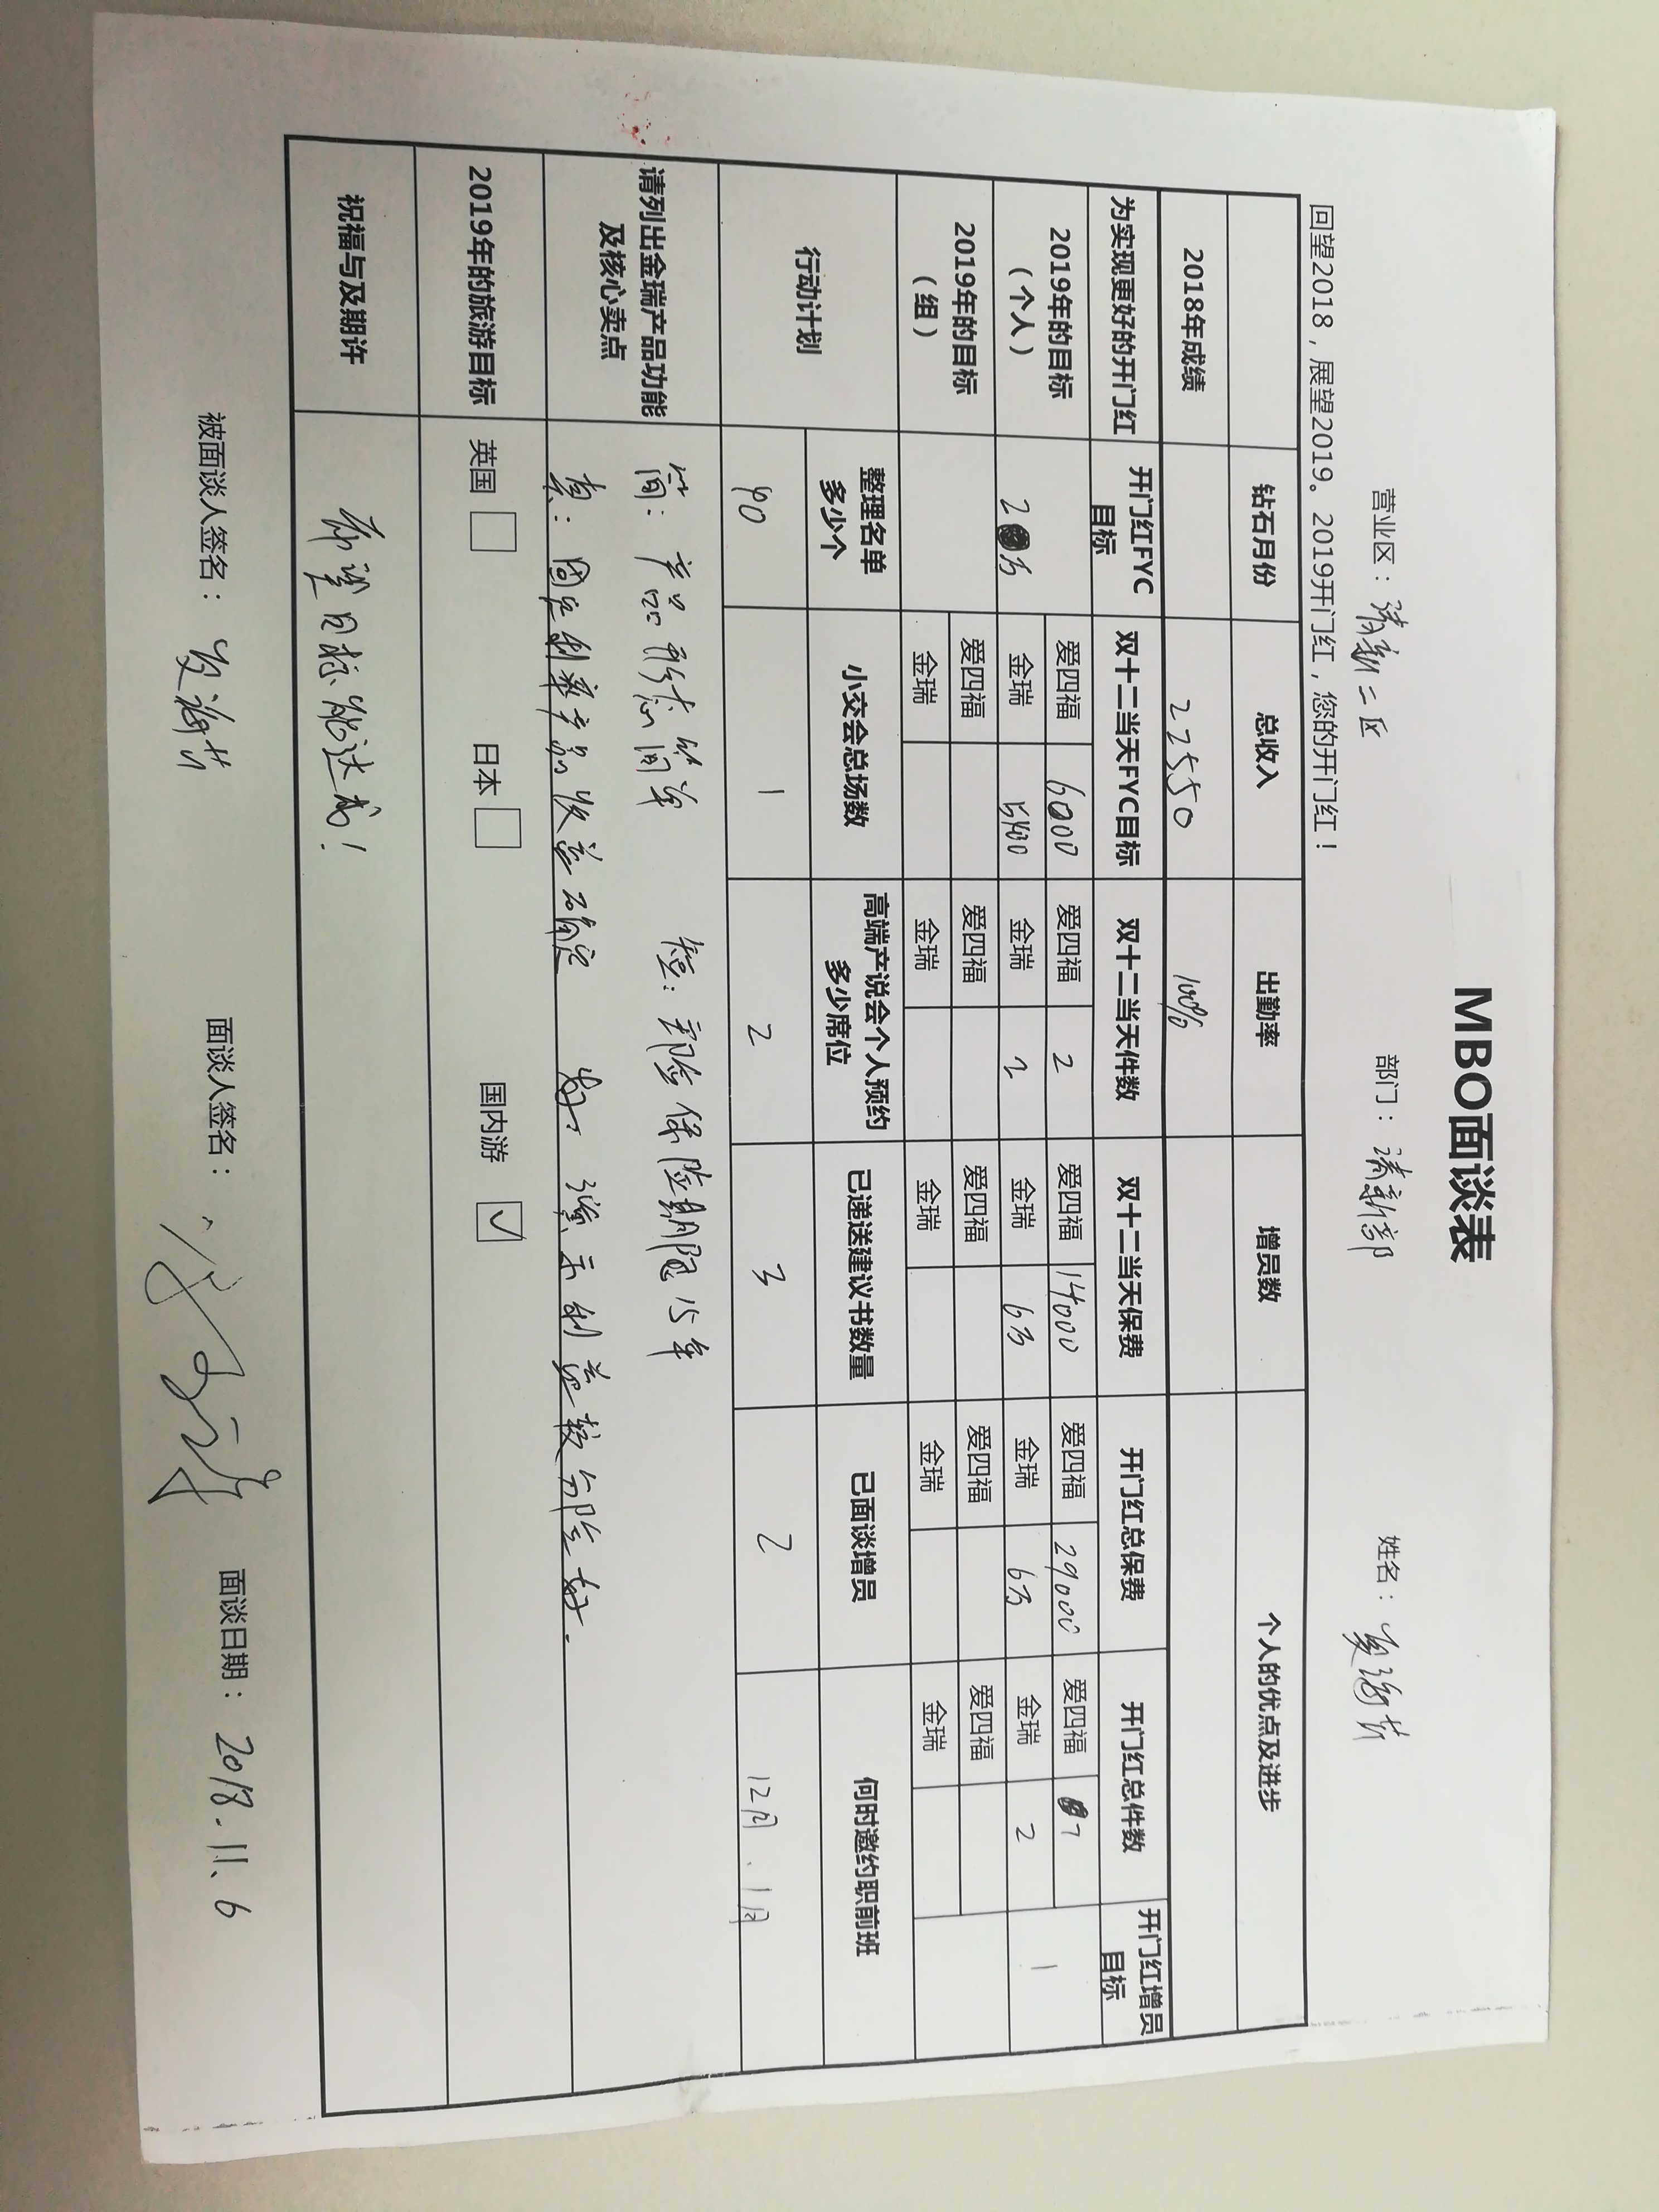 MBO面谈表
营业区：清新二区 部门：清新部 姓名：
回望2018，展望2019。2019开门红，您的开门红！
钻石月份 总收入 出勤率 增员数 个人的优点及进步
2018年成绩 22550 100%
为实现更好的开门红 开门红FYC目标 双十二当天FYC目标 双十二当天件数 双十二当天保费 开门红总保费 开门红总件数 开门红增员目标
2019年的目标（个人） 2万 爱四福 6000 爱四福 2 爱四福 14000 爱四福 29000 爱四福 7 1
金瑞 5400 金瑞 2 金瑞 6万 金瑞 6万 金瑞 2
2019年的目标（组） 爱四福 爱四福 爱四福 爱四福 爱四福
金瑞 金瑞 金瑞 金瑞 金瑞
行动计划 整理名单多少个 小交会总场数 高端产说会个人预约多少席位 已递送建议书数量 已面谈增员 何时邀约职前班
40 1 2 3 2 12月、1月
请列出金瑞产品功能及核心卖点
简：产品形态简单 短：主险保险期限15年
真：固定利率 收益确定 好：演示利益较分险好.
2019年的旅游目标 英国 日本 国内游 ✓
祝福与及期许 希望目标能达成！
被面谈人签名： 面谈人签名： 面谈日期：2018.11、6